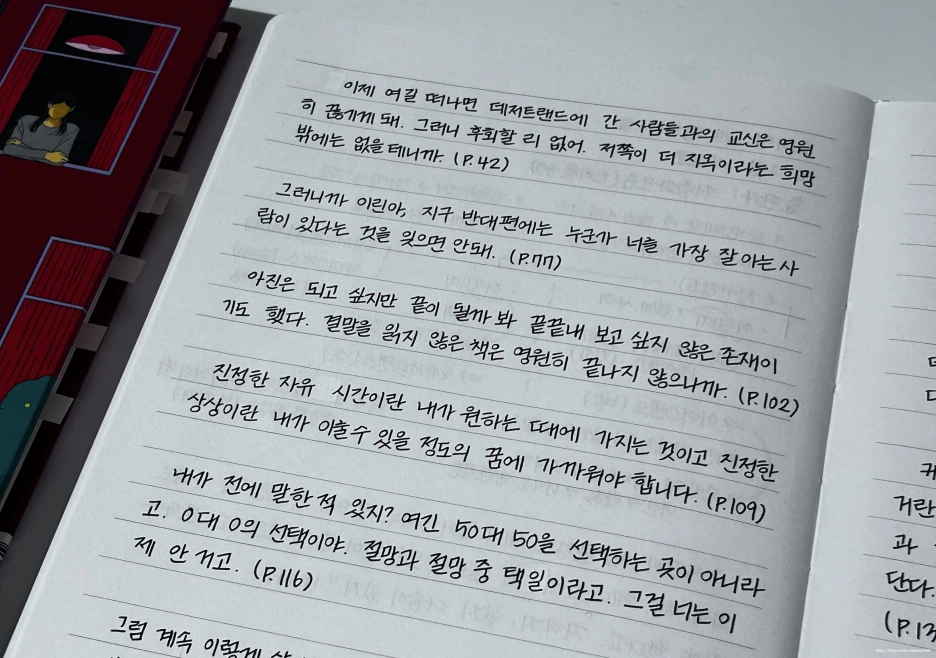 이제 여길 떠나면 데저트랜드에 간 사람들과의 교신은 영원
히 끊기게 돼. 그러니 후회할 리 없어. 저쪽이 더 지옥이라는 희망
밖에는 없을 테니까. (P.42)
그러니까 이린아, 지구 반대편에는 누군가 너를 가장 잘 아는 사
람이 있다는 것을 잊으면 안돼. (P.77)
아진은 되고 싶지만 끝이 될까 봐 끝끝내 보고 싶지 않은 존재이
기도 했다. 결말을 읽지 않은 책은 영원히 끝나지 않으니까. (P.102)
진정한 자유 시간이란 내가 원하는 때에 가지는 것이고 진정한
상상이란 내가 이룰 수 있을 정도의 꿈에 가까워야 합니다. (P.109)
내가 전에 말한 적 있지? 여긴 50대 50을 선택하는 곳이 아니라
고. 0대 0의 선택이야. 절망과 절망 중 택일이라고. 그걸 너는 이
제 안 거고. (P.116)
그럼 계속 이렇게
거란
과
단다.
(P.13